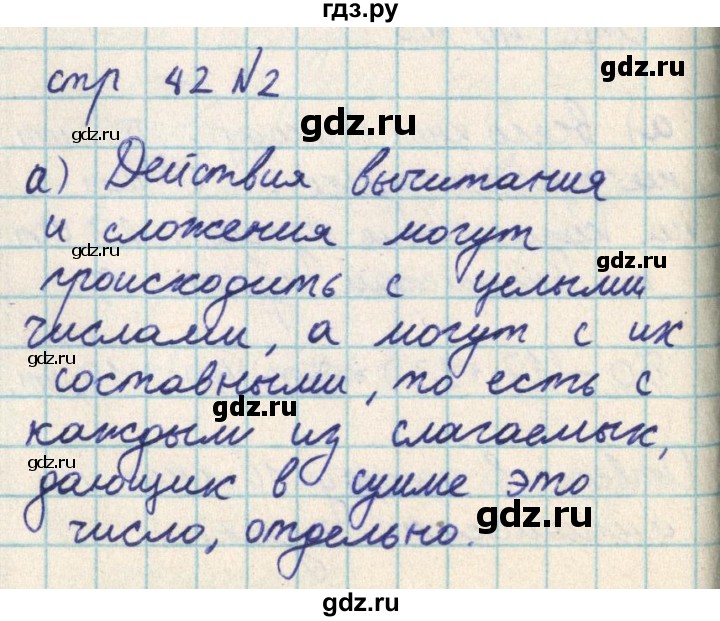 гдз.ру
стр 42 N2
gdz.ru
gdz.ru
gdz.ru
а) Действия вычитания
и сложения могут
gdz.ru
gdz.ru
происходить с целыми
числами, а могут с их
gdz.ru
составными, то есть с
gdz.ru
каждым из слагаемых,
gdz.ru
дающих в сумме это
gdz.ru
число, отдельно.
gdz.ru
gdz.ru